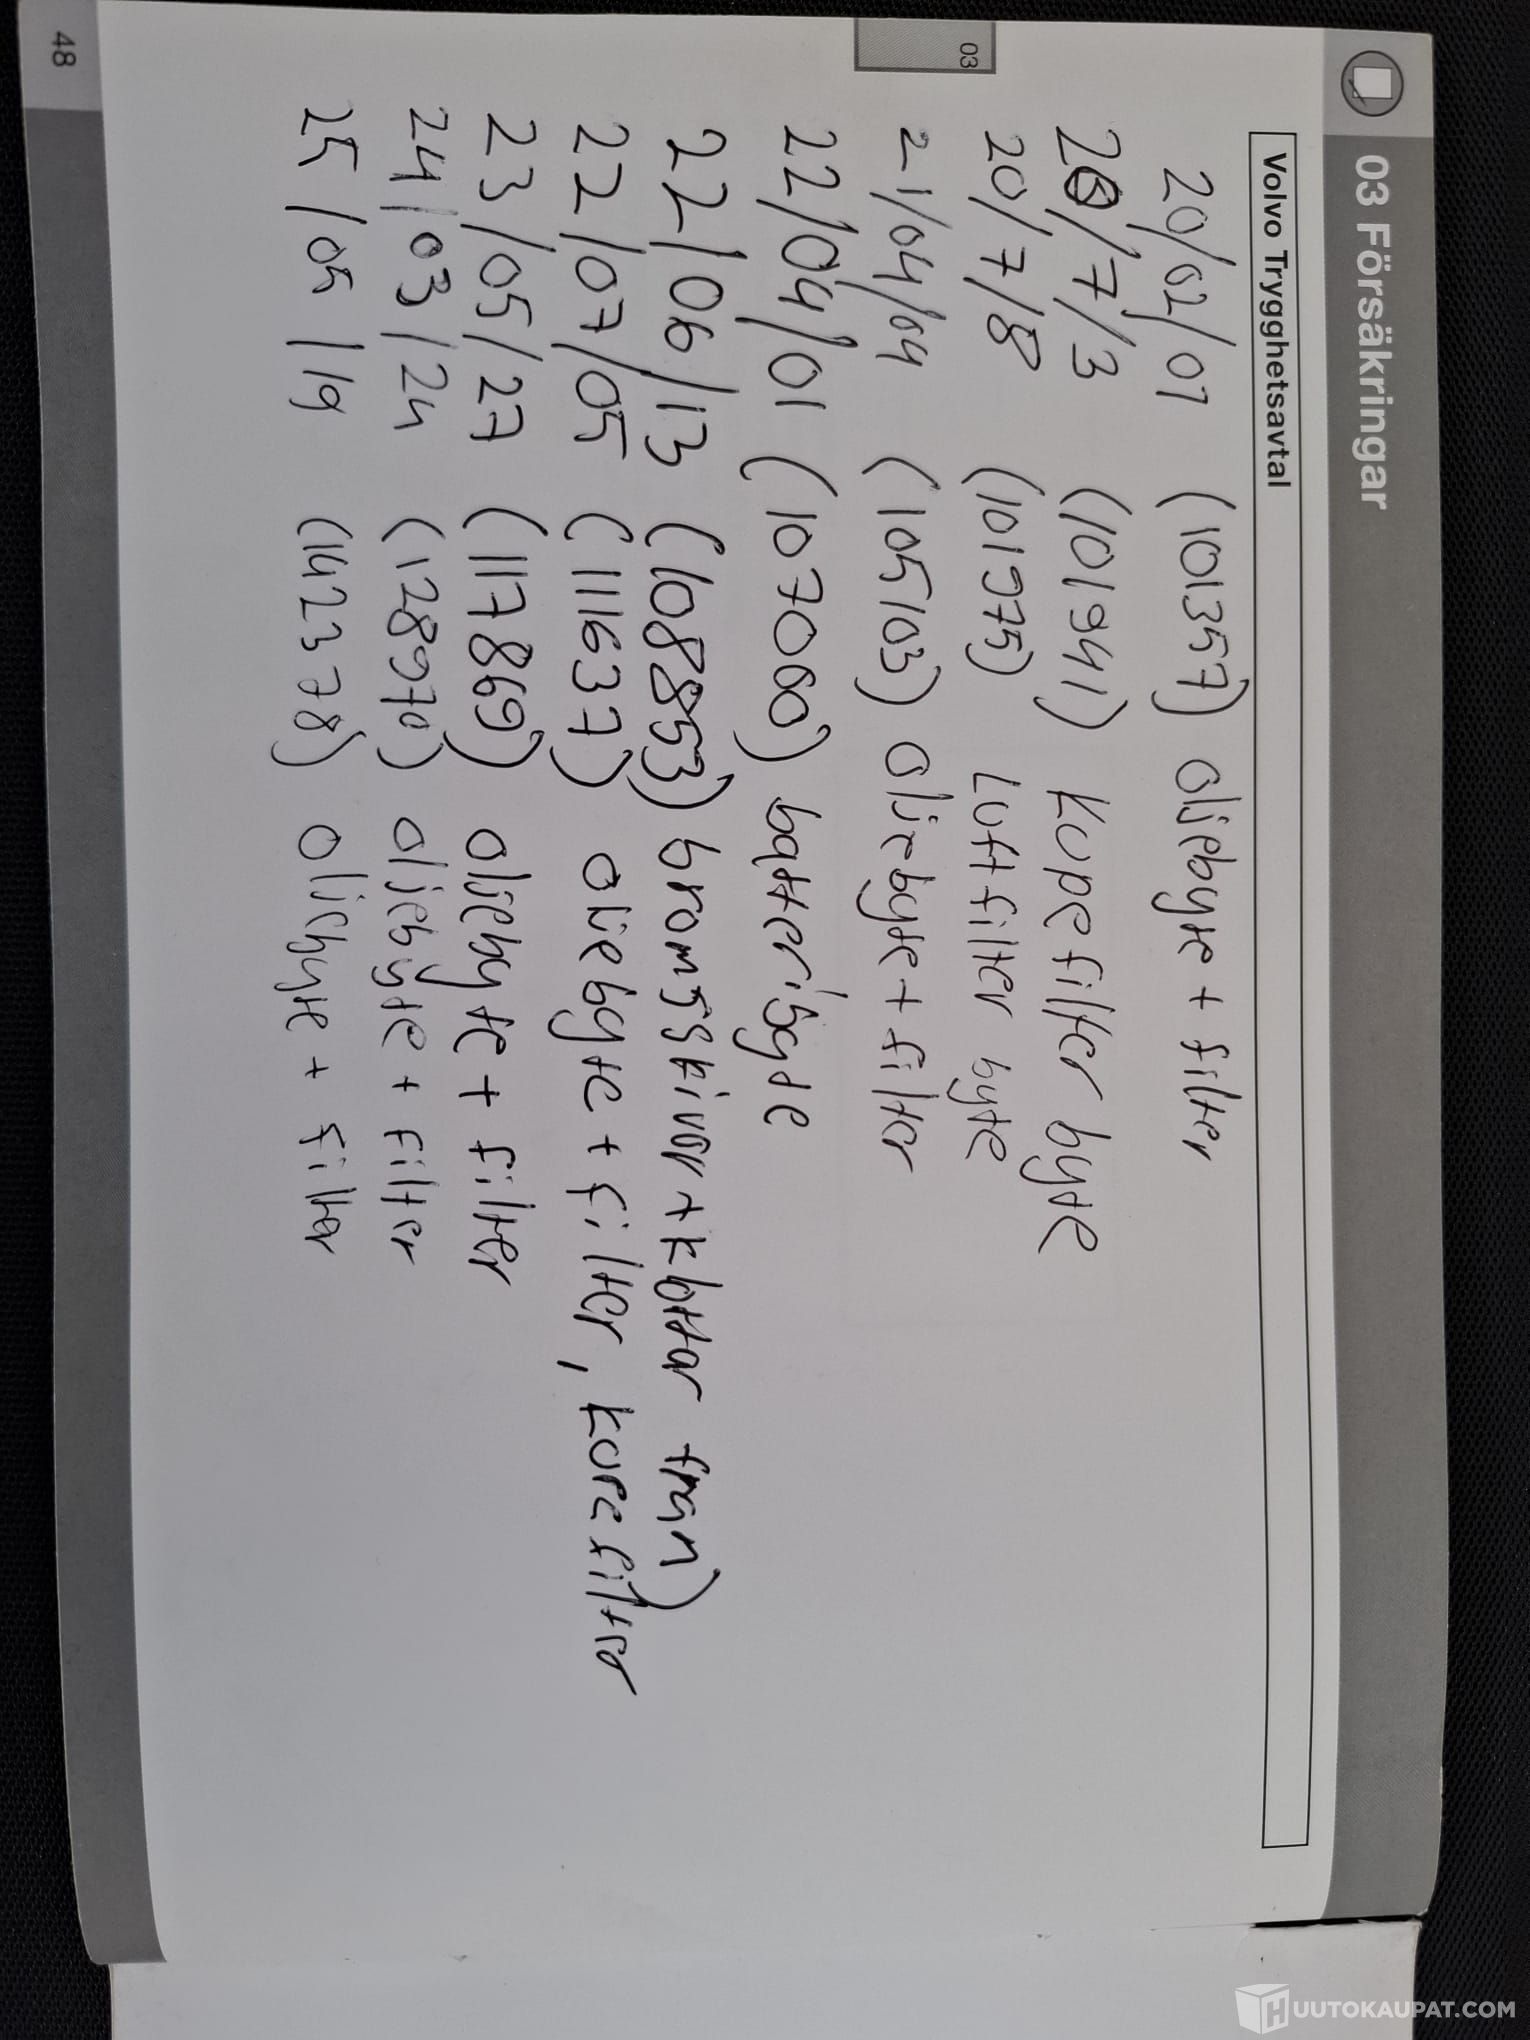 03 Försäkringar
Volvo Trygghetsavtal
20/02/01 (101357) oljebyte + filter
20/7/3 (101941) kupefilter byte
03
20/7/8 (101975) Luftfilter byte
21/04/04 (105103) oljebyte + filter
22/04/01 (107060) batteribyte
22/06/13 (108853) bromsskivor + klottar fram)
22/07/05 (111637) oljebyte + filter, kupefilter
23/05/27 (117869) oljebyte + filter
24/03/24 (128970) oljebyte + filter
25/05/19 (142378) oljebyte + filter
48
HUUTOKAUPAT.COM